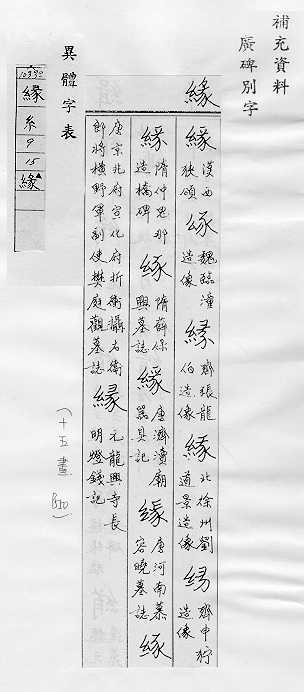 補充資料
廣碑別字
緣
緣 漢西狹頌 緣 魏臨潼造像 緣 齊張龍伯造像 緣 北徐州劉道景造像 緣 齊中狩造像
緣 隋仲思那造橋碑 緣 隋薛保興墓誌 緣 唐濟瀆廟器具記 緣 唐河南慕容曉墓誌 緣
唐京北府宣化府折衝攝右衛郎將橫野軍副使樊庭觀墓誌 緣 元龍興寺長明燈錢記
(十五畫
異體字表
緣
糸
9
15
緣